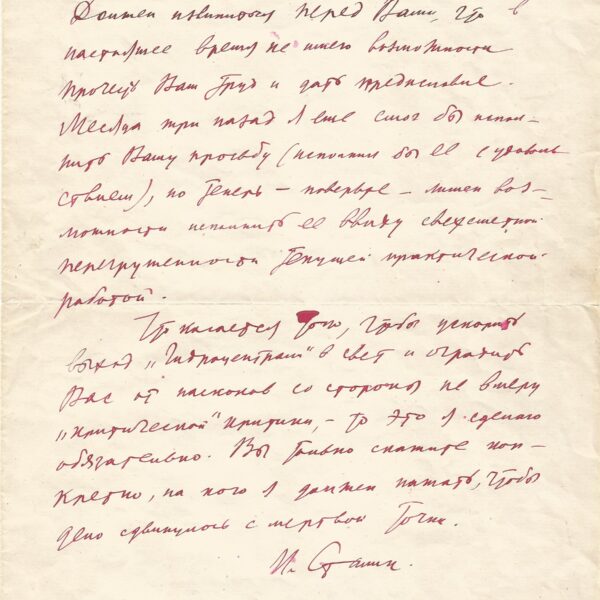 Должен извиниться перед Вами, что в
настоящее время не имею возможности
прочесть Ваш труд и дать предисловие.
Месяца три назад я еще смог бы испол-
нить Вашу просьбу (исполнил бы ее с удоволь-
ствием), но теперь – поверьте – лишен воз-
можности исполнить ее ввиду сверхсметной
перегруженности текущей практической
работой.
Что касается того, чтобы ускорить
выход „Гидроцентрали" в свет и оградить
Вас от наскоков со стороны не в меру
„критической" критики, – то это я сделаю
обязательно. Вы только скажите кон-
кретно, на кого я должен нажать, чтобы
дело сдвинулось с мертвой точки.
И. Сталин.